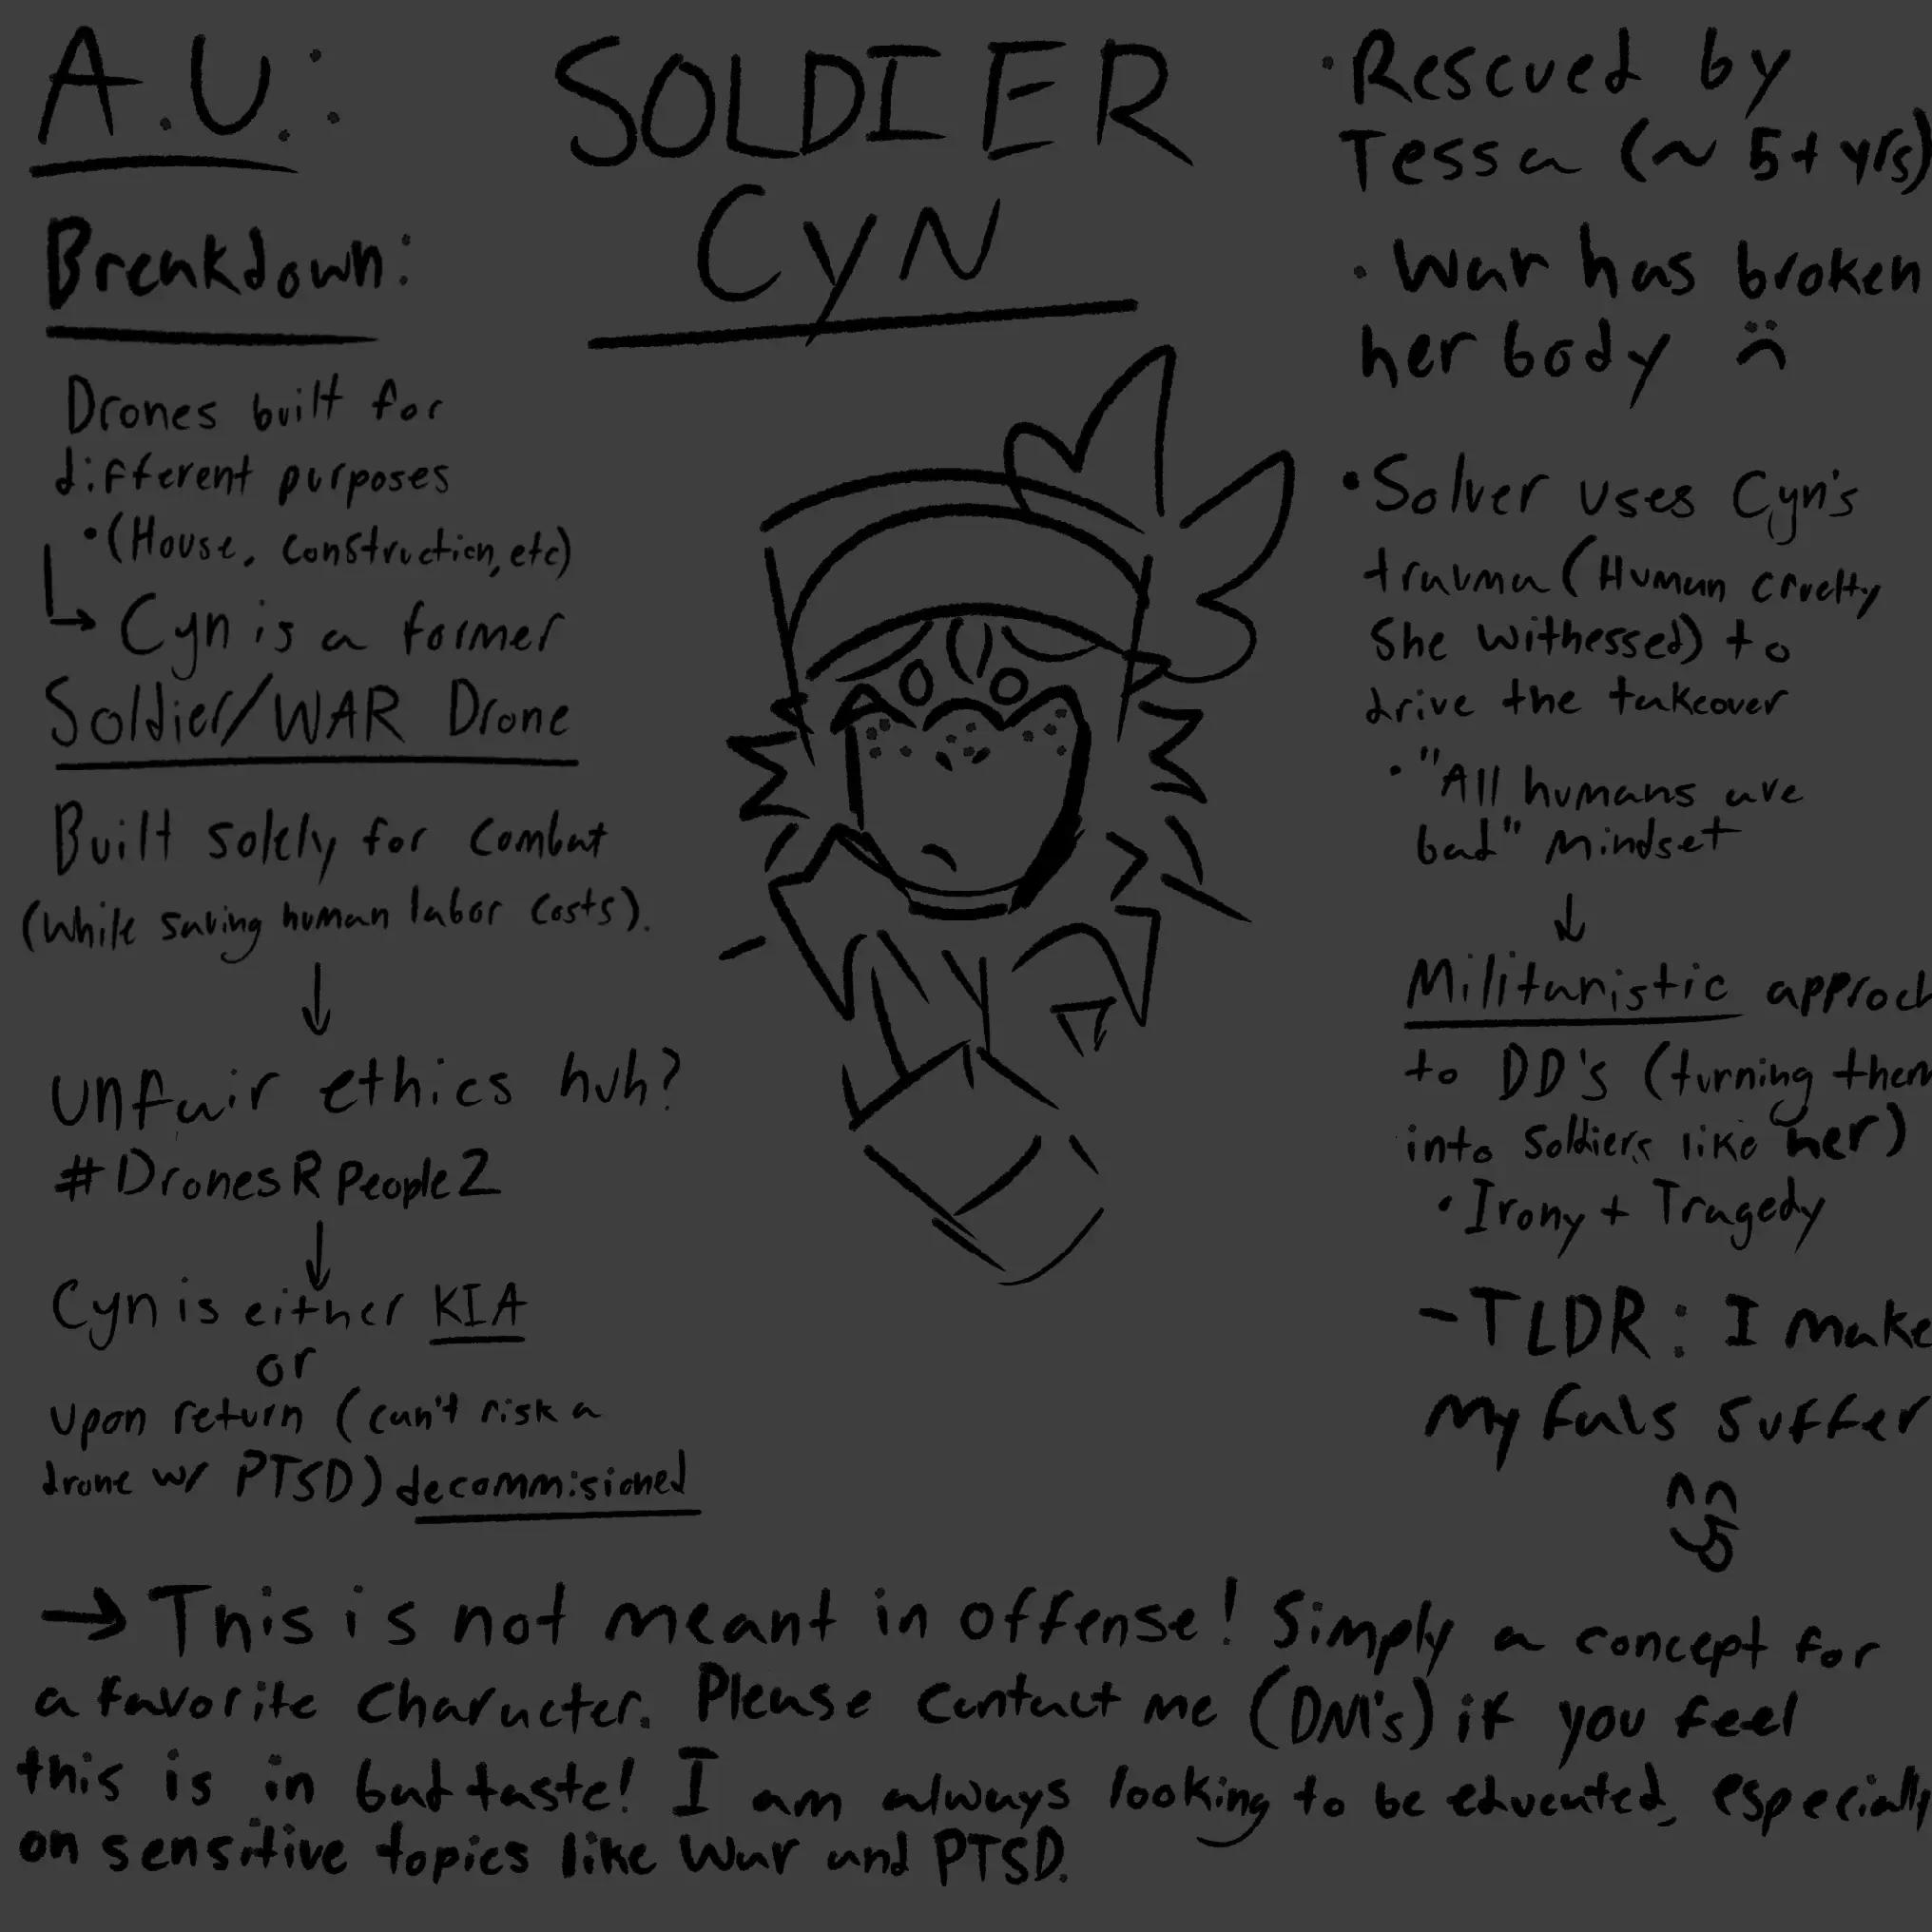 A.U.:
SOLDIER
Cyn
Breakdown:
Drones built for
different purposes
•(House, construction, etc)
↳ Cyn is a former
Soldier/WAR Drone
Built solely for combat
(while saving human labor costs).
↓
Unfair ethics huh?
#DronesRPeople2
↓
Cyn is either KIA
or
Upon return (can't risk a
drone w/ PTSD) decommisioned
•Rescued by
Tessa (~ 5+ yrs)
•War has broken
her body :(
•Solver uses Cyn's
trauma (Human cruelty
she witnessed) to
drive the takeover
•"All humans are
bad" mindset
↓
Militaristic approch
to DD's (turning them
into soldiers like her)
•Irony + Tragedy
-TLDR: I make
my favs suffer
→ This is not meant in offense! Simply a concept for
a favorite character. Please contact me (DM's) if you feel
this is in bad taste! I am always looking to be educated, especially
on sensitive topics like war and PTSD.